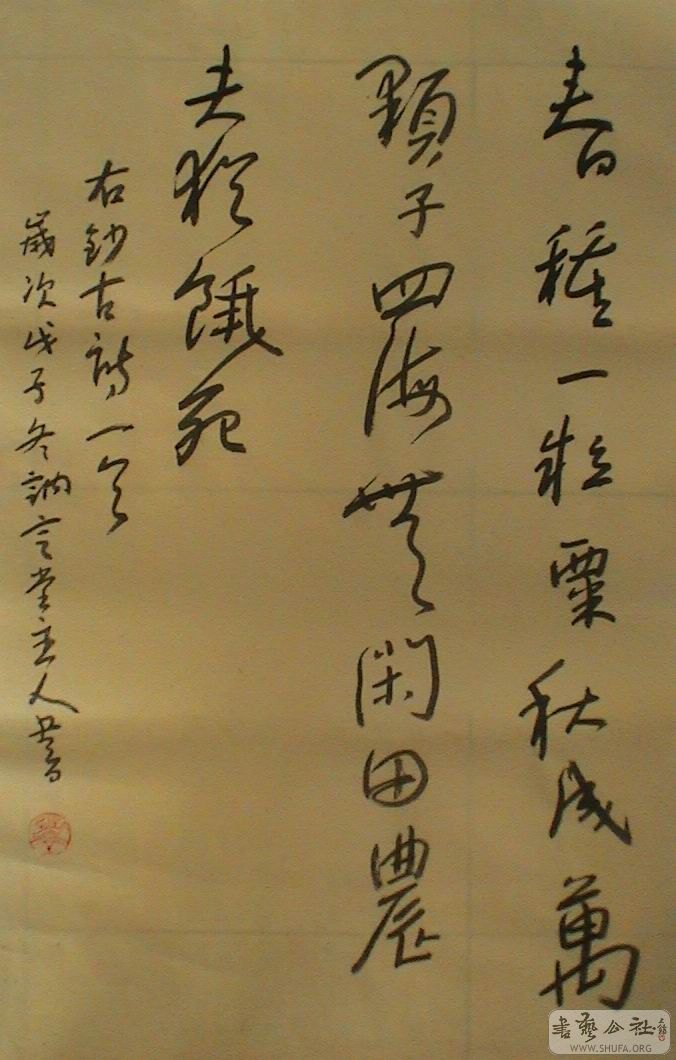 春種一粒粟秋成萬
顆子四海無閑田農
夫猶餓死
右鈔古詩一首
歲次戊子冬訥言堂主人書
書藝公社
WWW.SHUFA.ORG